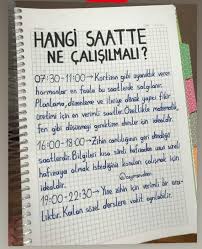 HANGİ SAATTE
NE ÇALIŞILMALI?
07:30-11:00→ Kortizon gibi uyanıklık veren
hormonlar en fazla bu saatlerde salgılanır.
Planlama, düşünme ve ileriye dönük yapıcı fikir
üretimi için en verimli saatler. Özellikle matematik,
fen gibi düşünmeyi gerektiren dersler için idealdir.
16:00-18:00→ Zihin canlılığının geri döndüğü
saatlerdir. Bilgileri kısa süreli hafızadan uzun süreli
hafızaya olmak istediğiniz konuları çalışmak için
idealdir.
19:00-22:30→ Yine zihin için verimli bir ara-
lıktır. Kalan sözel derslere vakit ayrılabilir.